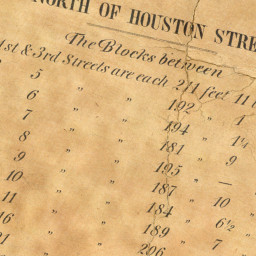 NORTH OF HOUSTON STRE
The Blocks between
1st & 3rd Streets are each 211 feet 11
5 " " 192 " 1
6 " " 194 " 1¼
7 " " 181 " 9
8 " " 195 " —
9 " " 187 " 10
10 " " 184 " 6½
11 " " 189 " 7
16 " " 206
21